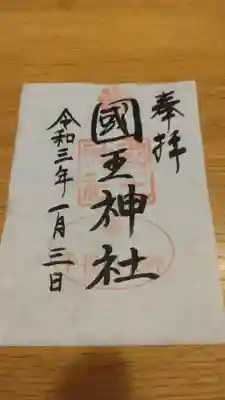 奉拝
國王神社
令和三年一月三日